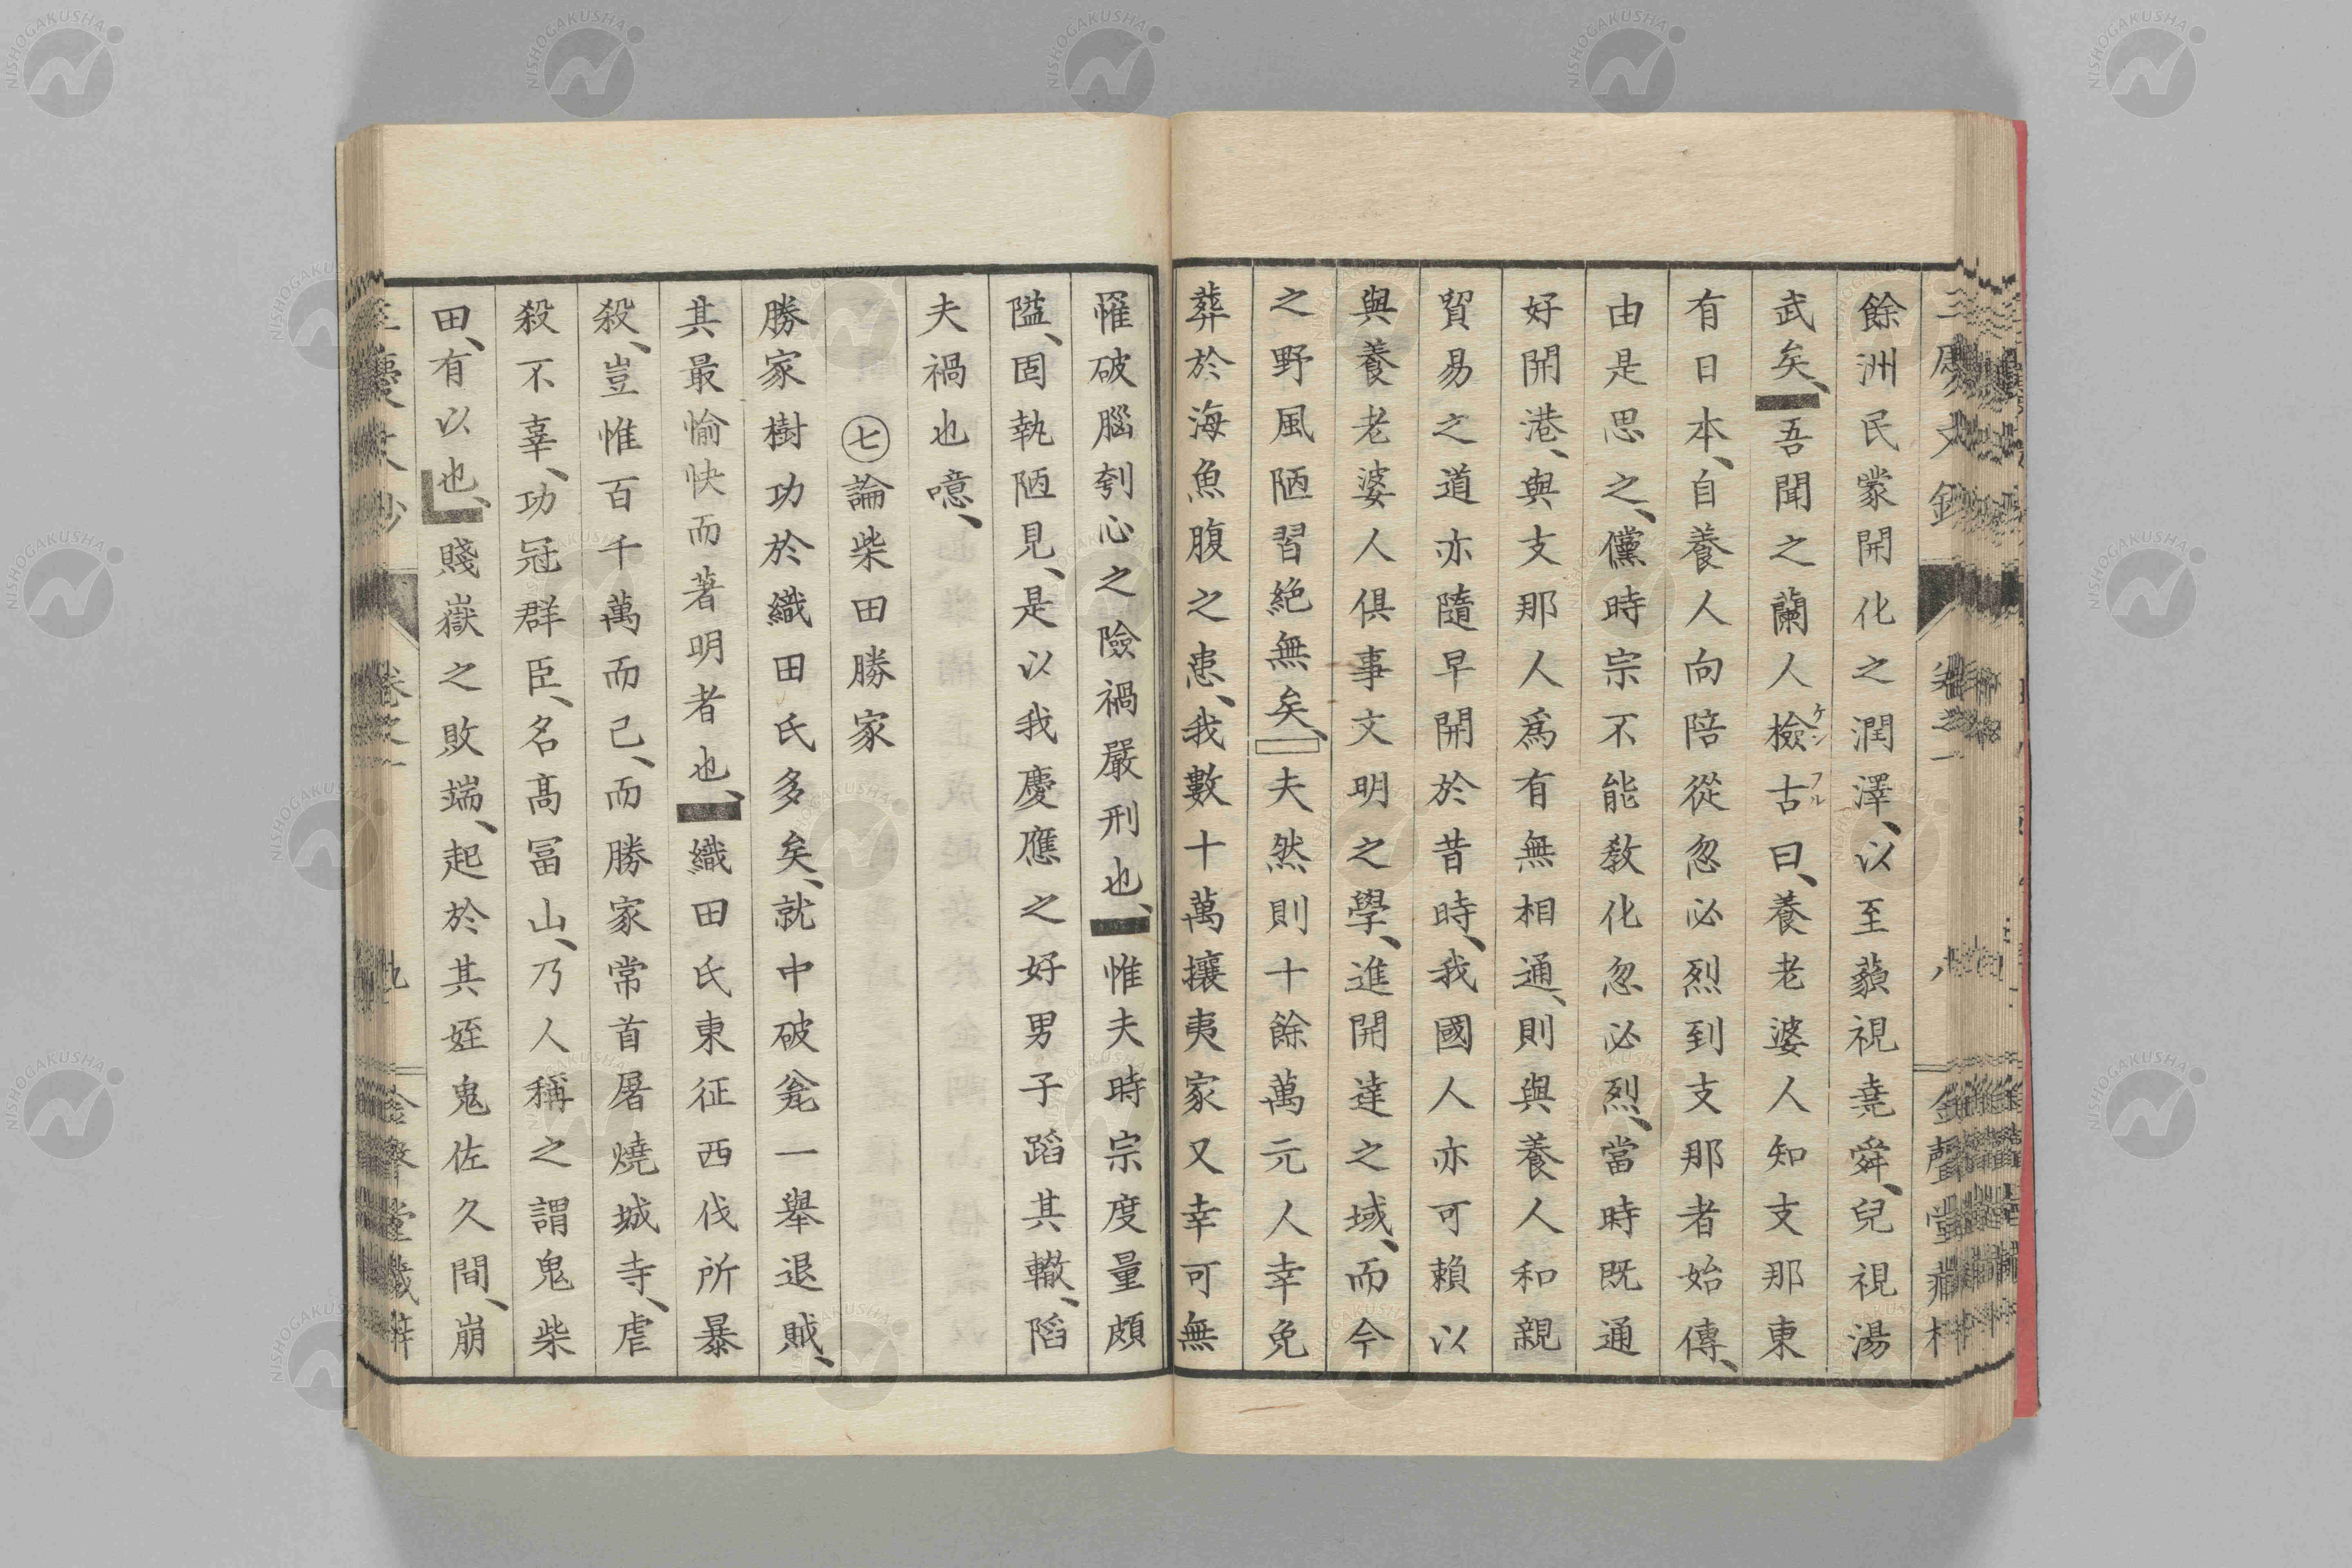 餘洲民蒙開化之潤澤、以至藐視堯舜、兒視湯
武矣、吾聞之蘭人檢古曰、養老婆人知支那東
ケン フル
有日本、自養人向陪從忽必烈到支那者始傳、
由是思之、儻時宗不能教化忽必烈、當時既通
好開港、與支那人爲有無相通、則與養人和親
貿易之道亦隨早開於昔時、我國人亦可賴以
與養老婆人俱事文明之學、進開達之域、而今
之野風陋習絕無矣、夫然則十餘萬元人幸免
葬於海魚腹之患、我數十萬攘夷家又幸可無
罹破腦刳心之險禍嚴刑也、惟夫時宗度量頗
隘、固執陋見、是以我慶應之好男子蹈其轍、陷
夫禍也噫、
㊆論柴田勝家
勝家樹功於織田氏多矣、就中破瓮一擧退賊、
其最愉快而著明者也、織田氏東征西伐所暴
殺、豈惟百千萬而已、而勝家常首屠燒城寺、虐
殺不辜、功冠群臣、名高冨山、乃人稱之謂鬼柴
田、有以也、賤嶽之敗端、起於其姪鬼佐久間、崩